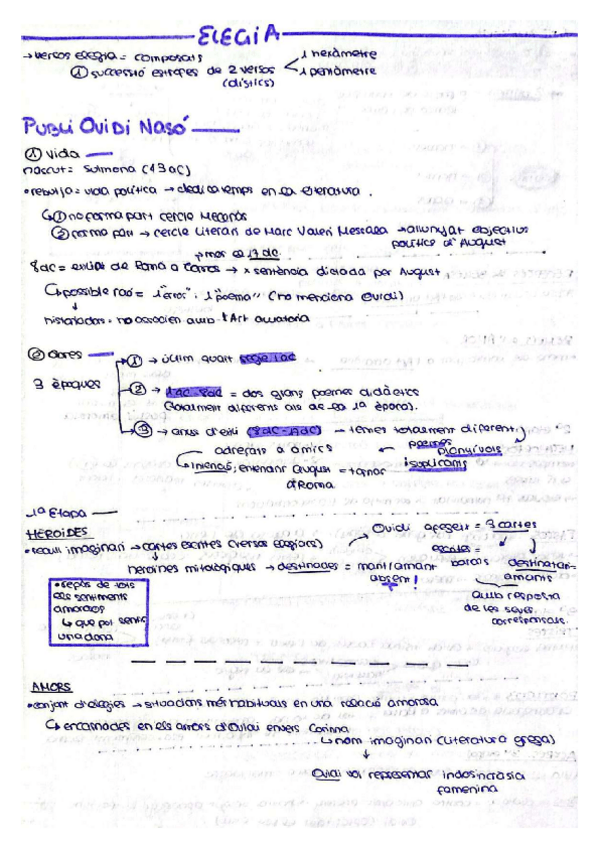 ELEGIA
→ versos elegia = composats 1 hexàmetre
① successió estrofes de 2 versos 1 pentàmetre
(dístics)
PUBLI OVIDI NASÓ
① Vida
nascut = Sulmona (43 aC)
• rebutja = vida política → dedica temps en la literatura.
↳ ① no forma part cercle Mecenas
② forma part → cercle literari de Marc Valeri Messala → allunyat objectius
polítics d'August
mor el 17 dC.
8 dC = exiliat de Roma a Tomos → x sentència dictada per August
↳ possible raó = 1 "error", 1 "poema" (no menciona Ovidi)
historiadors = ho associen amb l'Art amatoria
② obres → ① → últim quart segle I aC
3 èpoques
② → 1dC-8dC = dos grans poemes didàctics
(totalment diferents als de la 1a època).
③ → anys d'exili (8dC-17dC) → temes totalment diferents
poemes planyívols
adreçats a amics i suplicants
↳ intenció; entendrir August = tornar
a Roma
1a Etapa
HEROIDES
Ovidi afegeix = 3 cartes
• recull imaginari → cartes escrites (versos elegíacs)
escrites =
heroïnes mitològiques → destinades = marit/amant barons destinatàri=
absent! amants
amb resposta
de les seves
corresponsals.
• repàs de tots
els sentiments
amorosos
↳ que pot sentir
una dona
AMORS
• conjunt d'elegies → situacions més habituals en una relació amorosa
↳ encarnades en els amors d'Ovidi envers Corinna
↳ nom imaginari (literatura grega)
Ovidi va representar indosincràsia
femenina